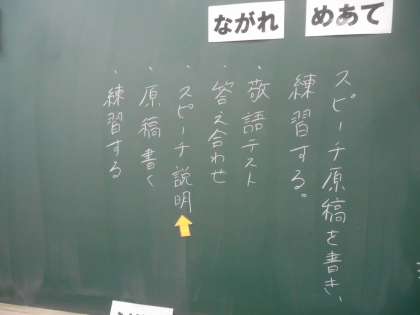 めあて
スピーチ原稿を書き、
練習する。
ながれ
・敬語テスト
・答え合わせ
・スピーチ説明
・原稿書く
・練習する